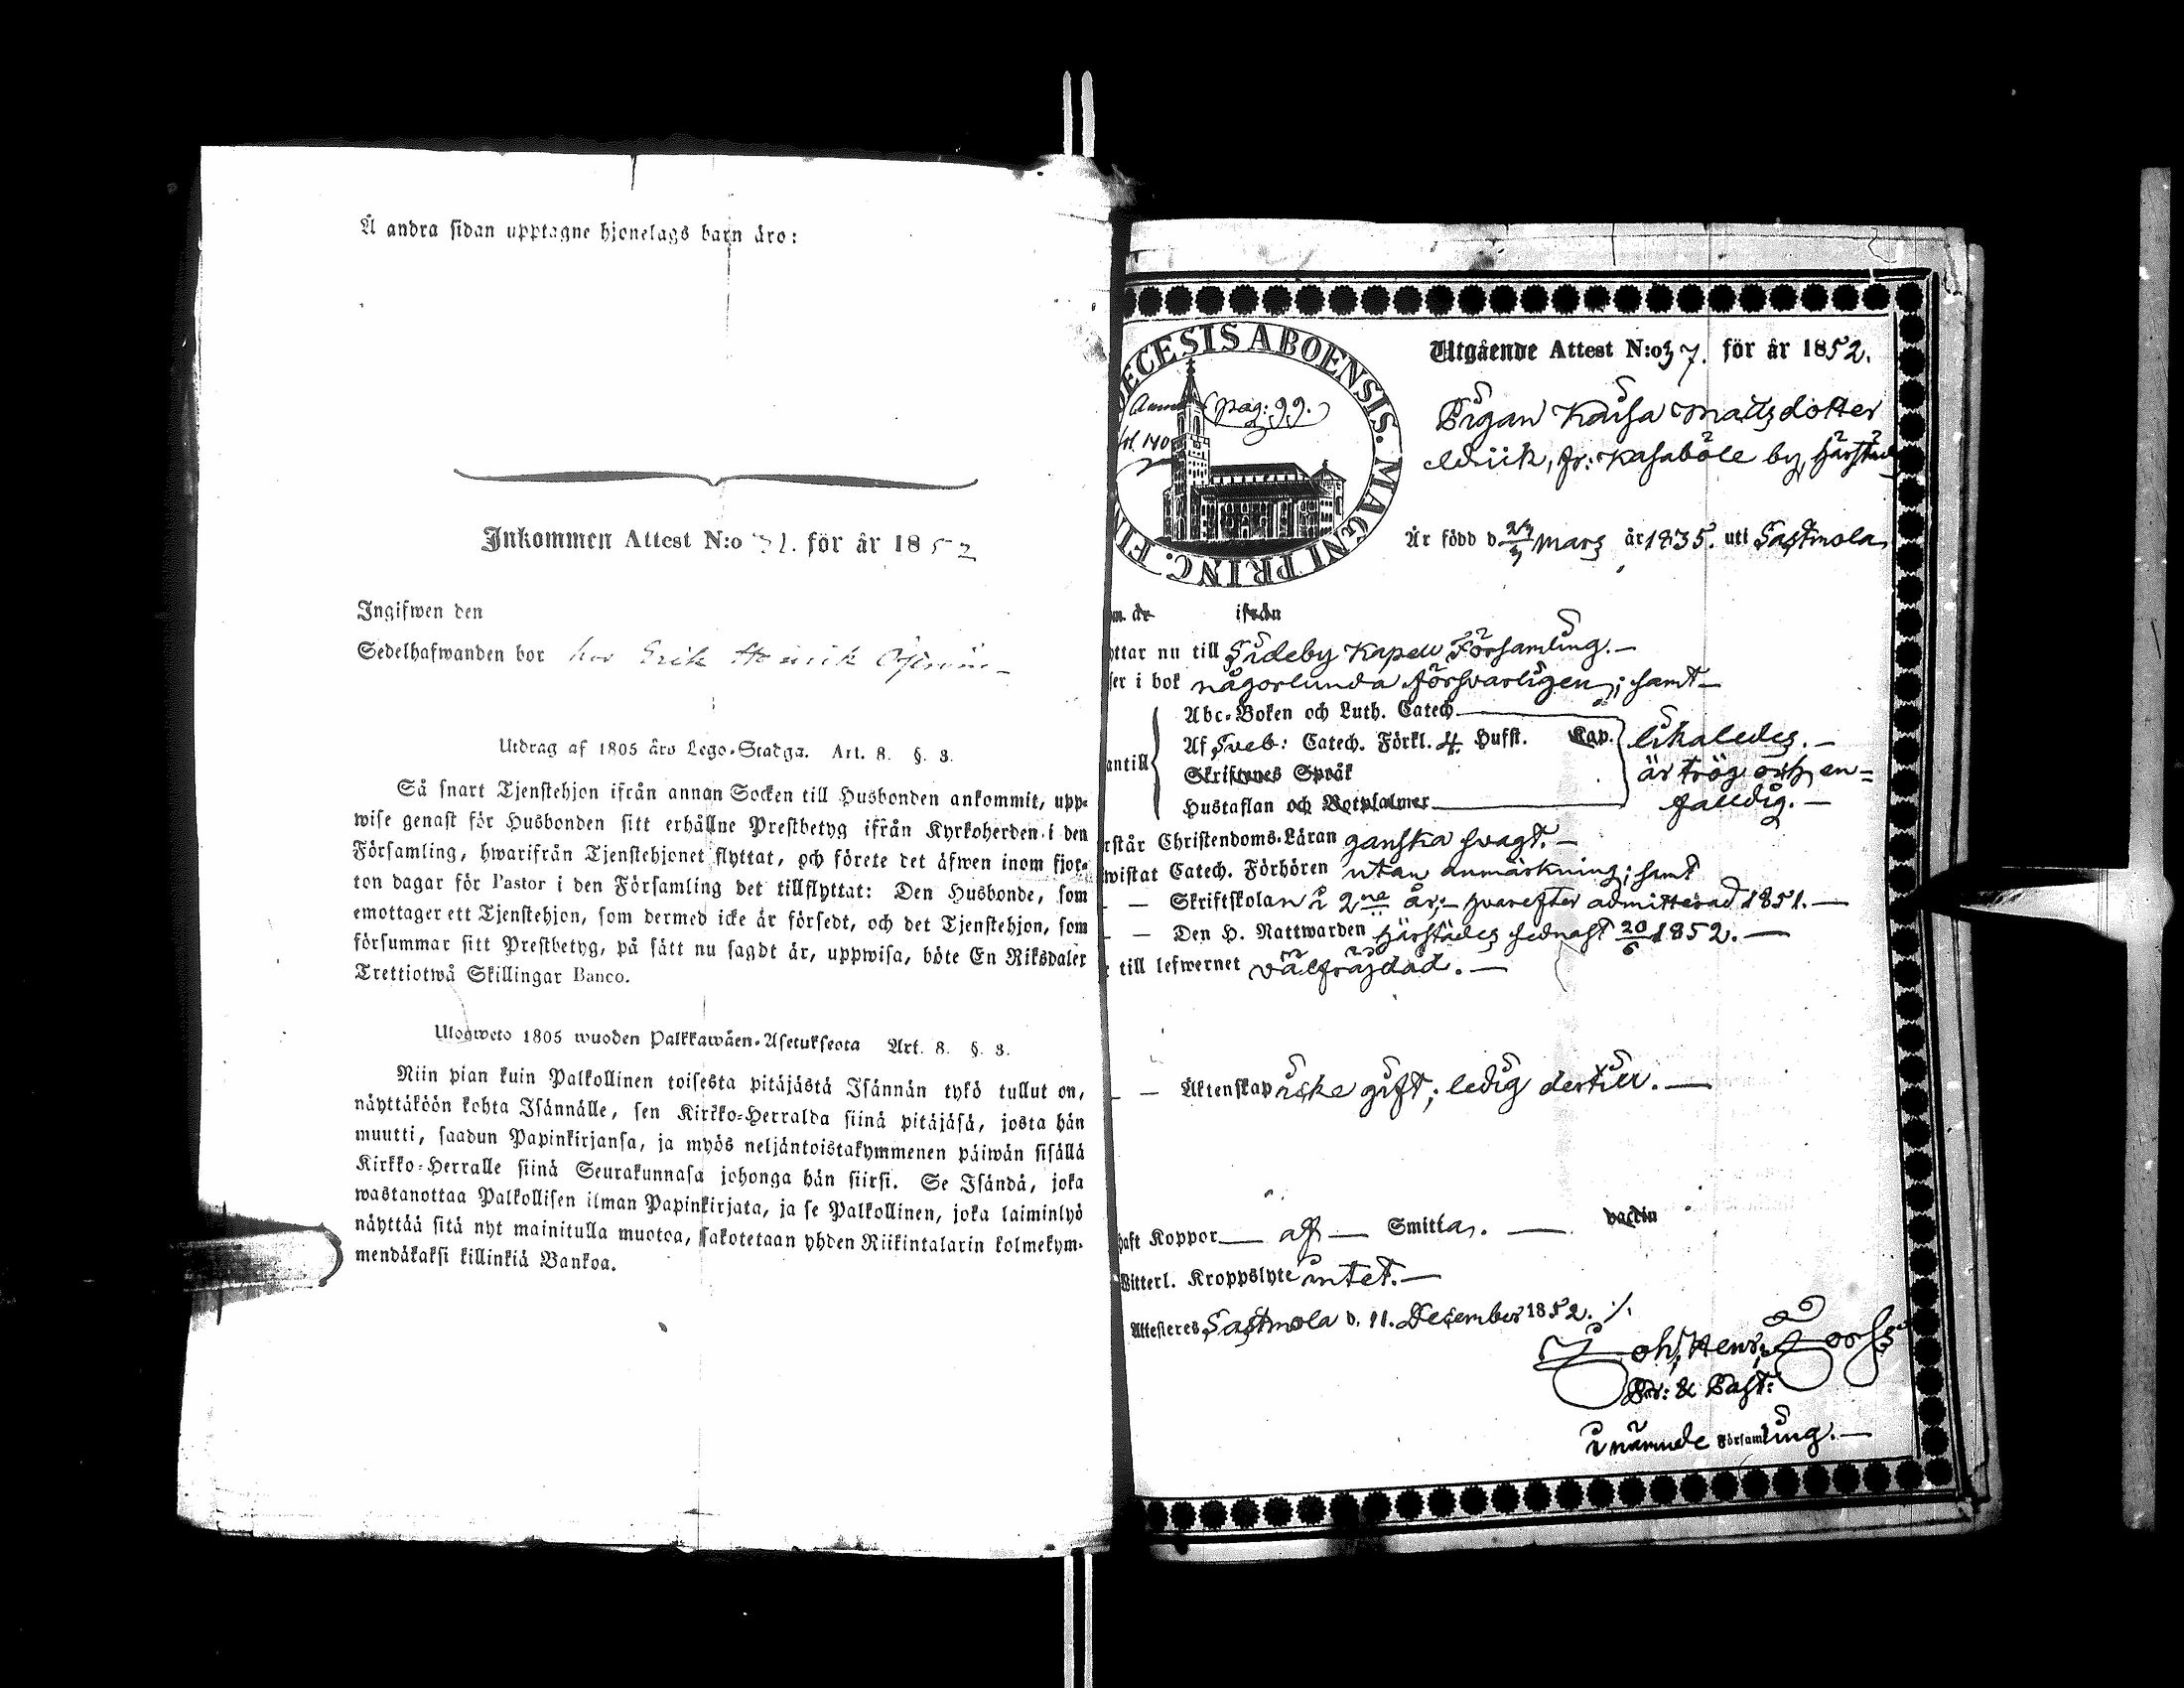 Å andra sidan upptagne hjonelags barn äro:
Inkommen Attest N:o 31. för år 1852
Ingifwen den
Sedelhafwanden bor hos Erik Henrik
Utdrag af 1805 års Lego-Stadga. Art. 8. §. 3.
Så snart Tjenstehjon ifrån annan Socken till Husbonden ankommit, upp-
wise genast för Husbonden sitt erhållne Prestbetyg ifrån Kyrkoherden i den
Församling, hwarifrån Tjenstehjonet flyttat, och förete det äfwen inom fjor-
ton dagar för Pastor i den Församling det tillflyttat: Den Husbonde, som
emottager ett Tjenstehjon, som dermed icke är försedt, och det Tjenstehjon, som
försummar sitt Prestbetyg, på sätt nu sagdt är, uppwisa, böte En Riksdaler
Trettiotwå Skillingar Banco.
Ulosweto 1805 wuoden Palkkawäen-Asetuksesta Art. 8. §. 3.
Niin pian kuin Palkollinen toisesta pitäjästä Isännän tykö tullut on,
näyttäköön kohta Isännälle, sen Kirkko-Herralda siinä pitäjäsä, josta hän
muutti, saadun Papinkirjansa, ja myös neljäntoistakymmenen päiwän sisällä
Kirkko-Herralle siinä Seurakunnasa johonga hän siirsi. Se Isändä, joka
wastanottaa Palkollisen ilman Papinkirjata, ja se Palkollinen, joka laiminlyö
näyttää sitä nyt mainitulla muotoa, sakotetaan yhden Riikintalarin kolmekym-
mendäkaksi killinkiä Bankoa.
ECESIS ABOENSIS. MAGNI PRINC. FIN
pag: 99.
Utgående Attest N:o 37. för år 1852.
Pigan Kaisa Mattsdotter
fr: Kasaböle by, härstäd
Är född d 23/3 Mars år 1835. uti Sastmola
ifrån
ttar nu till Sideby Kapell Församling.—
ser i bok någorlunda försvarligen; samt—
Abc-Boken och Luth. Catech.
Af Sveb: Catech. Förkl. 4. Hufst. Kap. likaledes.—
antill Skriftenes Språk är trög och en=
Hustaflan och Botpsalmer faldig.—
rstår Christendoms-Läran ganska svagt.—
wistat Catech. Förhören utan anmärkning; samt
— — Skriftskolan i 2ne år;— hvarefter admitterad 1851.—
— — Den H. Nattwarden härstädes sednast 20/6 1852.—
till lefwernet välfräjdad.—
— — Äktenskap icke gift; ledig dertill.—
haft Koppor — af — Smittan. — vaccin
Witterl. Kroppslyte intet.—
Attesteres Sastmola d. 11. December 1852. ./.
Joh, Henr,
Pr: & Past:
i nämnde Församling.—